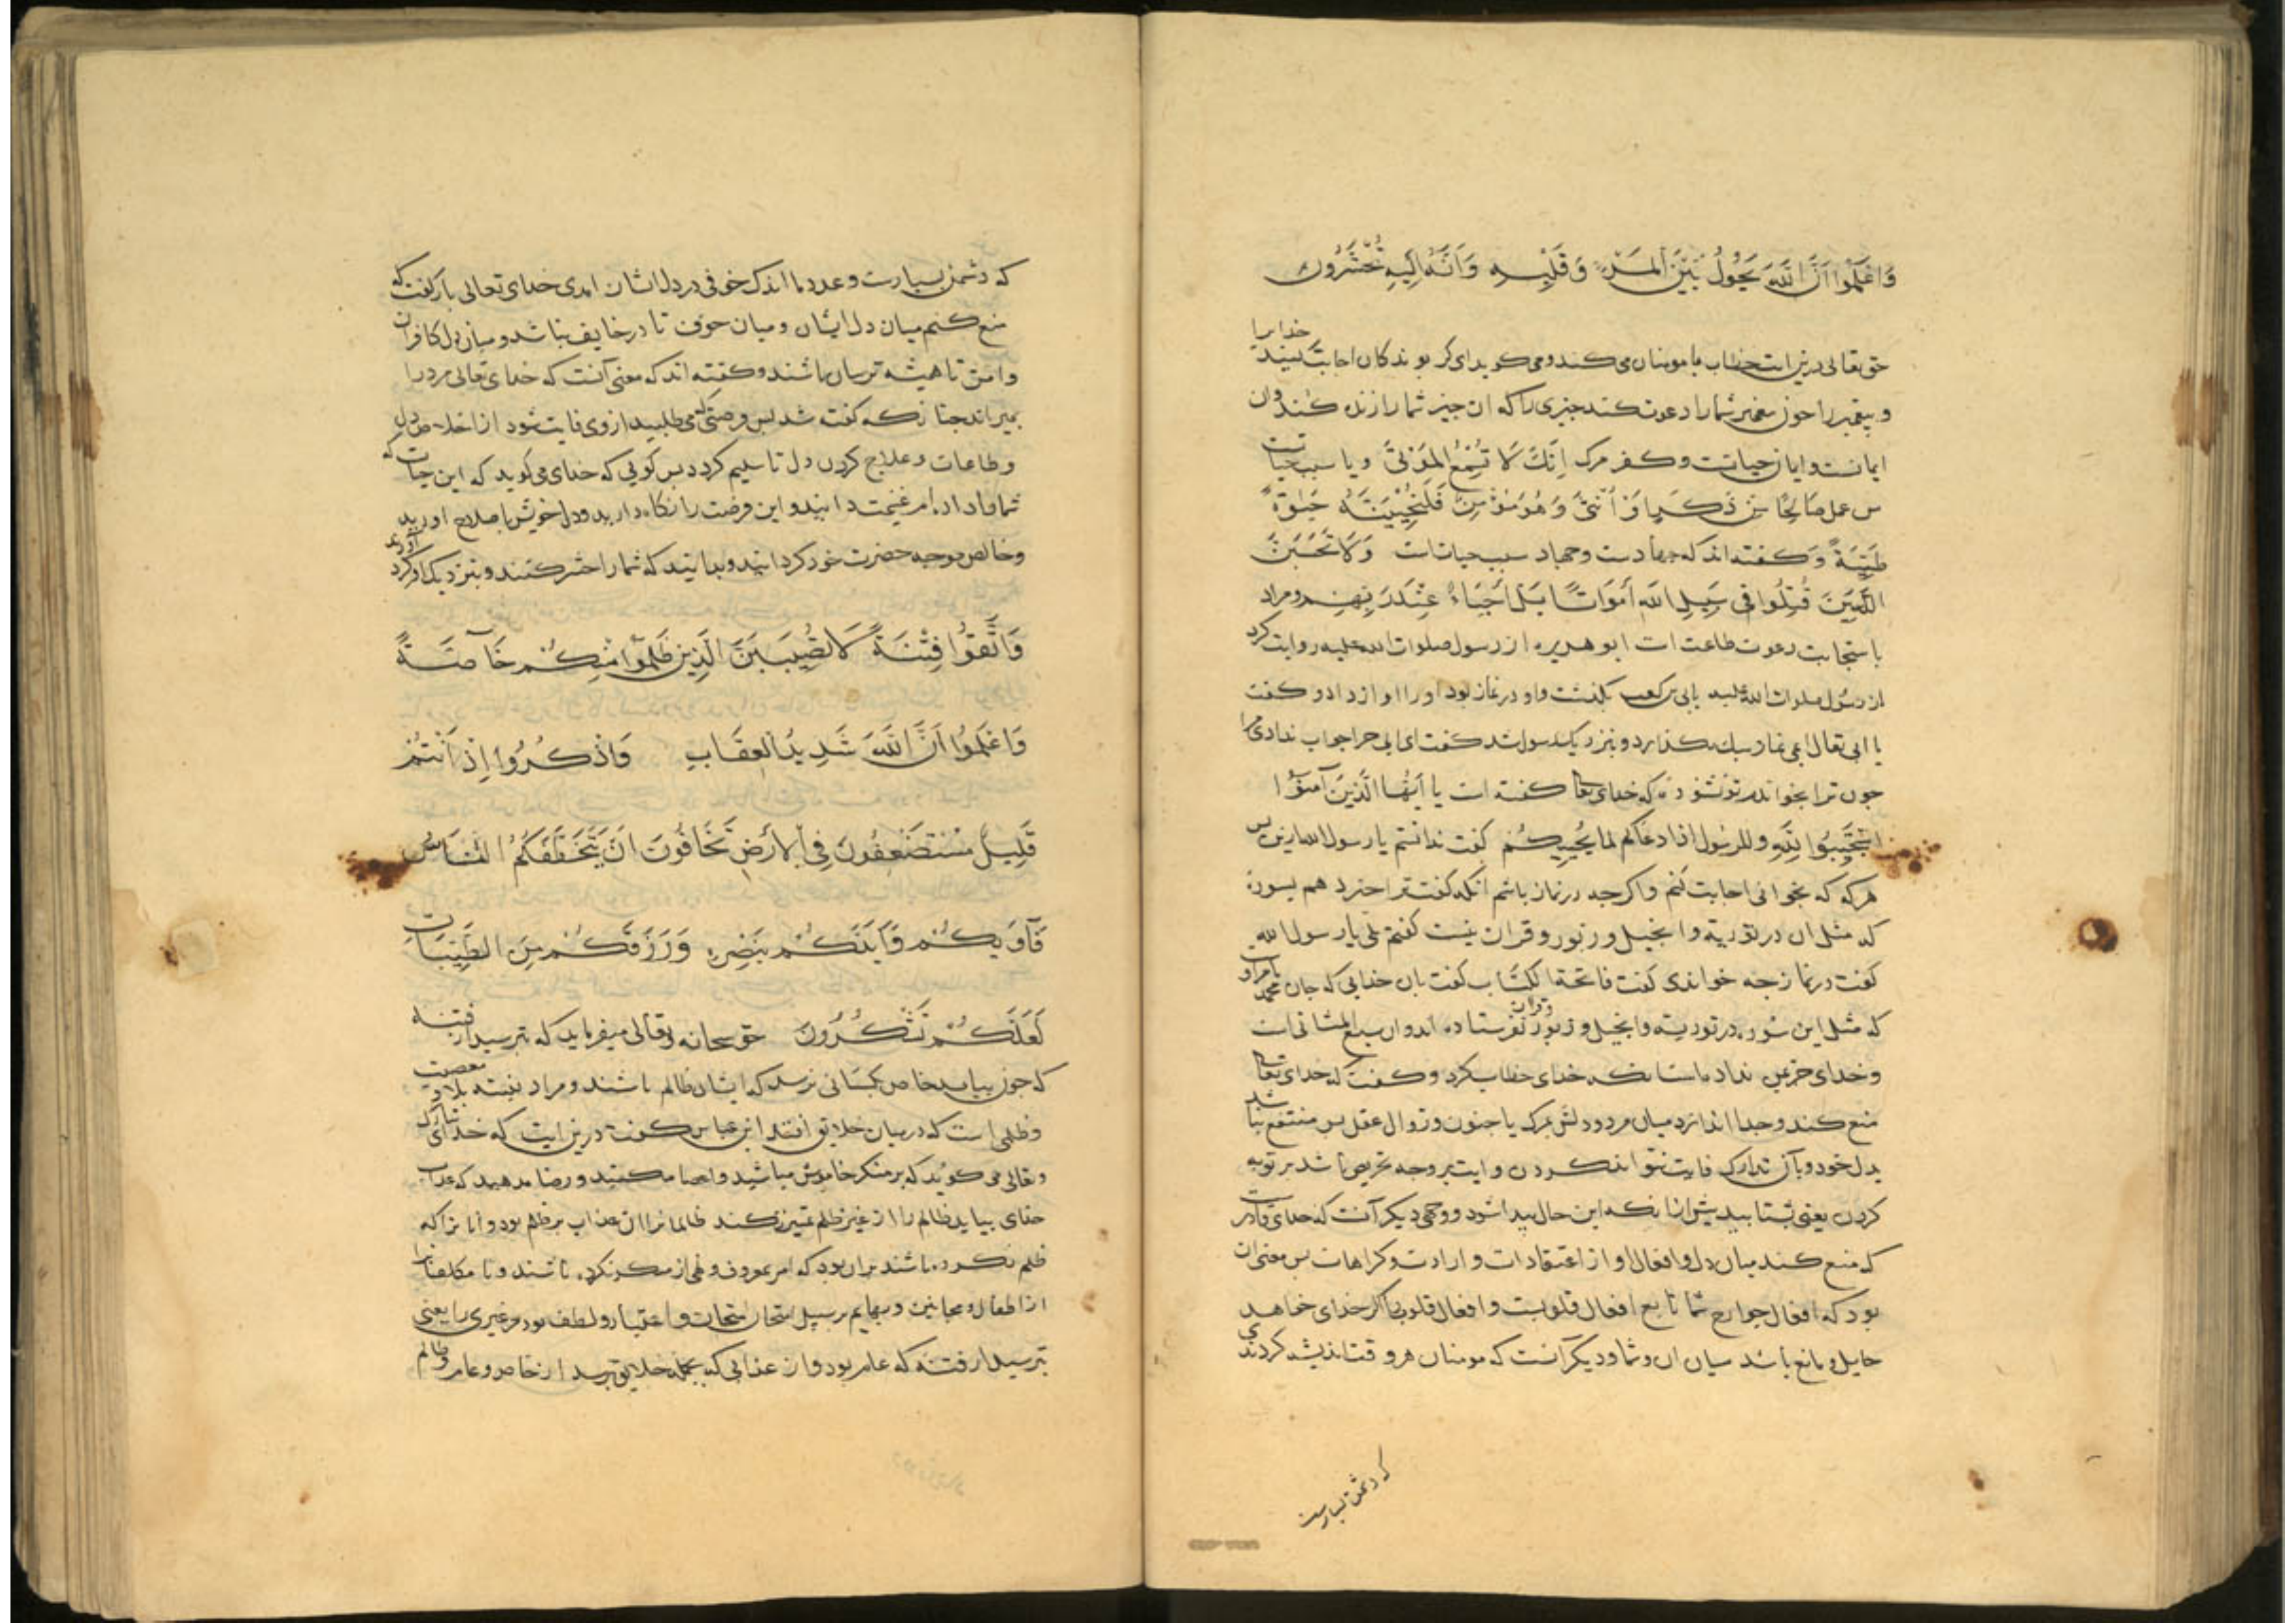 وَاعْلَمُوا اَنَّ اللهَ يَحُولُ بَيْنَ الْمَرْءِ وَقَلْبِهِ وَاَنَّهُ اِلَيْهِ تُحْشَرُونَ
خدایرا
حق تعالی درین ایت خطاب با مومنان می کند و می کوید ای کروندکان اجابت کنید
و پیغمبر را جون پیغمبر شما را دعوت کند جیزی را که ان جیز شما را زنده کند وان
ایمانست و ایمان حیاتست و کفر مرک اِنَّكَ لَا تُسْمِعُ الْمَوْتَىٰ و یا سبب حیات
من عمل صَالِحًا مِنْ ذَكَرٍ اَوْ اُنْثَىٰ وَهُوَ مُؤْمِنٌ فَلَنُحْيِيَنَّهُ حَيٰوةً
طَيِّبَةً وَ کفته اند که جهادست و جهاد سبب حیاتست وَلَا تَحْسَبَنَّ
الَّذِينَ قُتِلُوا فِي سَبِيلِ اللهِ اَمْوَاتًا بَلْ اَحْيَاءٌ عِنْدَ رَبِّهِمْ و مراد
باستجابت دعوت طاعت است ابو هریره از رسول صلوات الله علیه روایت کرد
از رسول صلوات الله علیه بابی بن کعب بکذشت و او در نماز بود او را اواز داد و کفت
یا ابی تعال ابی نماز سبک بکذارد و بنزدیک رسول شد کفت ای ابی جرا جواب ندادی مرا
جون ترا بخواندم تو نشنوده که خدای تعا کفته است يا اَيُّهَا الَّذِينَ آمَنُوا
اسْتَجِيبُوا لِلّٰهِ وللرسُول اذا دعَاكُم لما يُحْيِيكُمْ کفت ندانستم یا رسول الله ازین پس
هرکه که بخوانی اجابت کنم و اکرجه در نماز باشم انکه کفت ترا خبر دهم بسورة
که مثل ان در توریة و انجیل و زبور و قران نیست کفتم بلی یا رسول الله
کفت در نماز جه خواندی کفت فاتحة الکتاب کفت بان خدایی که جان محمد بامر او
که مثل این سوره در توریة و انجیل و زبور و قران نفرستاده اند و ان سبع المثانی است
و خدای کفت که خدای تعا
منع کند و جدا اندازد میان مرد و دلش بمرک یا جنون و زوال عقل پس منتفع نباشد
بدل خود و بآن تدارک فایت نتواند کردن و ایت بر وجه تحریص باشد بر توبه
کردن یعنی بشتابید پیش ازانکه این حال پیدا شود و وجهی دیکر آنست که خدای قادرست
که منع کند میان دل و افعال او از اعتقادات و ارادت و کراهات پس معنی ان
بود که افعال جوارح شما تابع افعال قلوبست و افعال قلوب اکر خدای خواهد
حایل و مانع باشد میان ان و شما و دیکر آنست که مومنان هر وقت اندیشه کردندی
که دشمن بسیارست
که دشمن بسیارست و عدد ما اندک خوفی در دل ایشان امدی خدای تعالی باز کفت که
منع کنم میان دل ایشان و میان خوف تا در خایف نباشد و میان دل کافران
و امن تا همیشه ترسان باشند و کفته اند که معنی آنست که خدای تعالی مرد را
بمیراند جنانکه کفته شد پس فرصتی که می طلبید از وی فایت شود از اخلاص دل
و طاعات و علاج کردن دل تا سلیم کردد پس کویی که خدای می کوید که این حیات که
شما را داده ام غنیمت دانید و این فرصت را نکاه دارید و دل خویش باصلاح اورید
و خالص موجه حضرت خود کردانید و بدانید که شما را حشر کنند و بنزدیک او کرد آورند
وَاتَّقُوا فِتْنَةً لَا تُصِيبَنَّ الَّذِينَ ظَلَمُوا مِنْكُمْ خَآصَّةً
وَاعْلَمُوا اَنَّ اللهَ شَدِيدُ الْعِقَابِ وَاذْكُرُوا اِذْ اَنْتُمْ
قَلِيلٌ مُسْتَضْعَفُونَ فِي الْاَرْضِ تَخَافُونَ اَنْ يَتَخَطَّفَكُمُ النَّاسُ
فَآوٰيكُمْ وَاَيَّدَكُمْ بِنَصْرِهِ وَرَزَقَكُمْ مِنَ الطَّيِّبَاتِ
لَعَلَّكُمْ تَشْكُرُونَ حق سبحانه و تعالی میفرماید که بترسید از فتنه
که جون بیاید خاص بکسانی نرسد که ایشان ظالم باشند و مراد بفتنه بلا و معصیت
و ظلمی است که در میان خلایق افتد ابن عباس کفت درین ایت که خدای تبارک
و تعالی می کوید که بر منکر خاموش مباشید و رضا مدهید که عذاب
خدای بیاید ظالم را از غیر ظالم تمییز نکند ظالمانرا ان عذاب بر ظلم بود و انانرا که
ظلم نکرده باشند بران بود که امر بمعروف و نهی از منکر نکرده باشند و نا مکلفانرا
از اطفال و مجانین و بهایم بر سبیل امتحان و اعتبار و لطف بود مر غیری را یعنی
بترسید از فتنه که عام بود و از عذابی که بجمله خلایق برسد از خاص و عام و ظالم